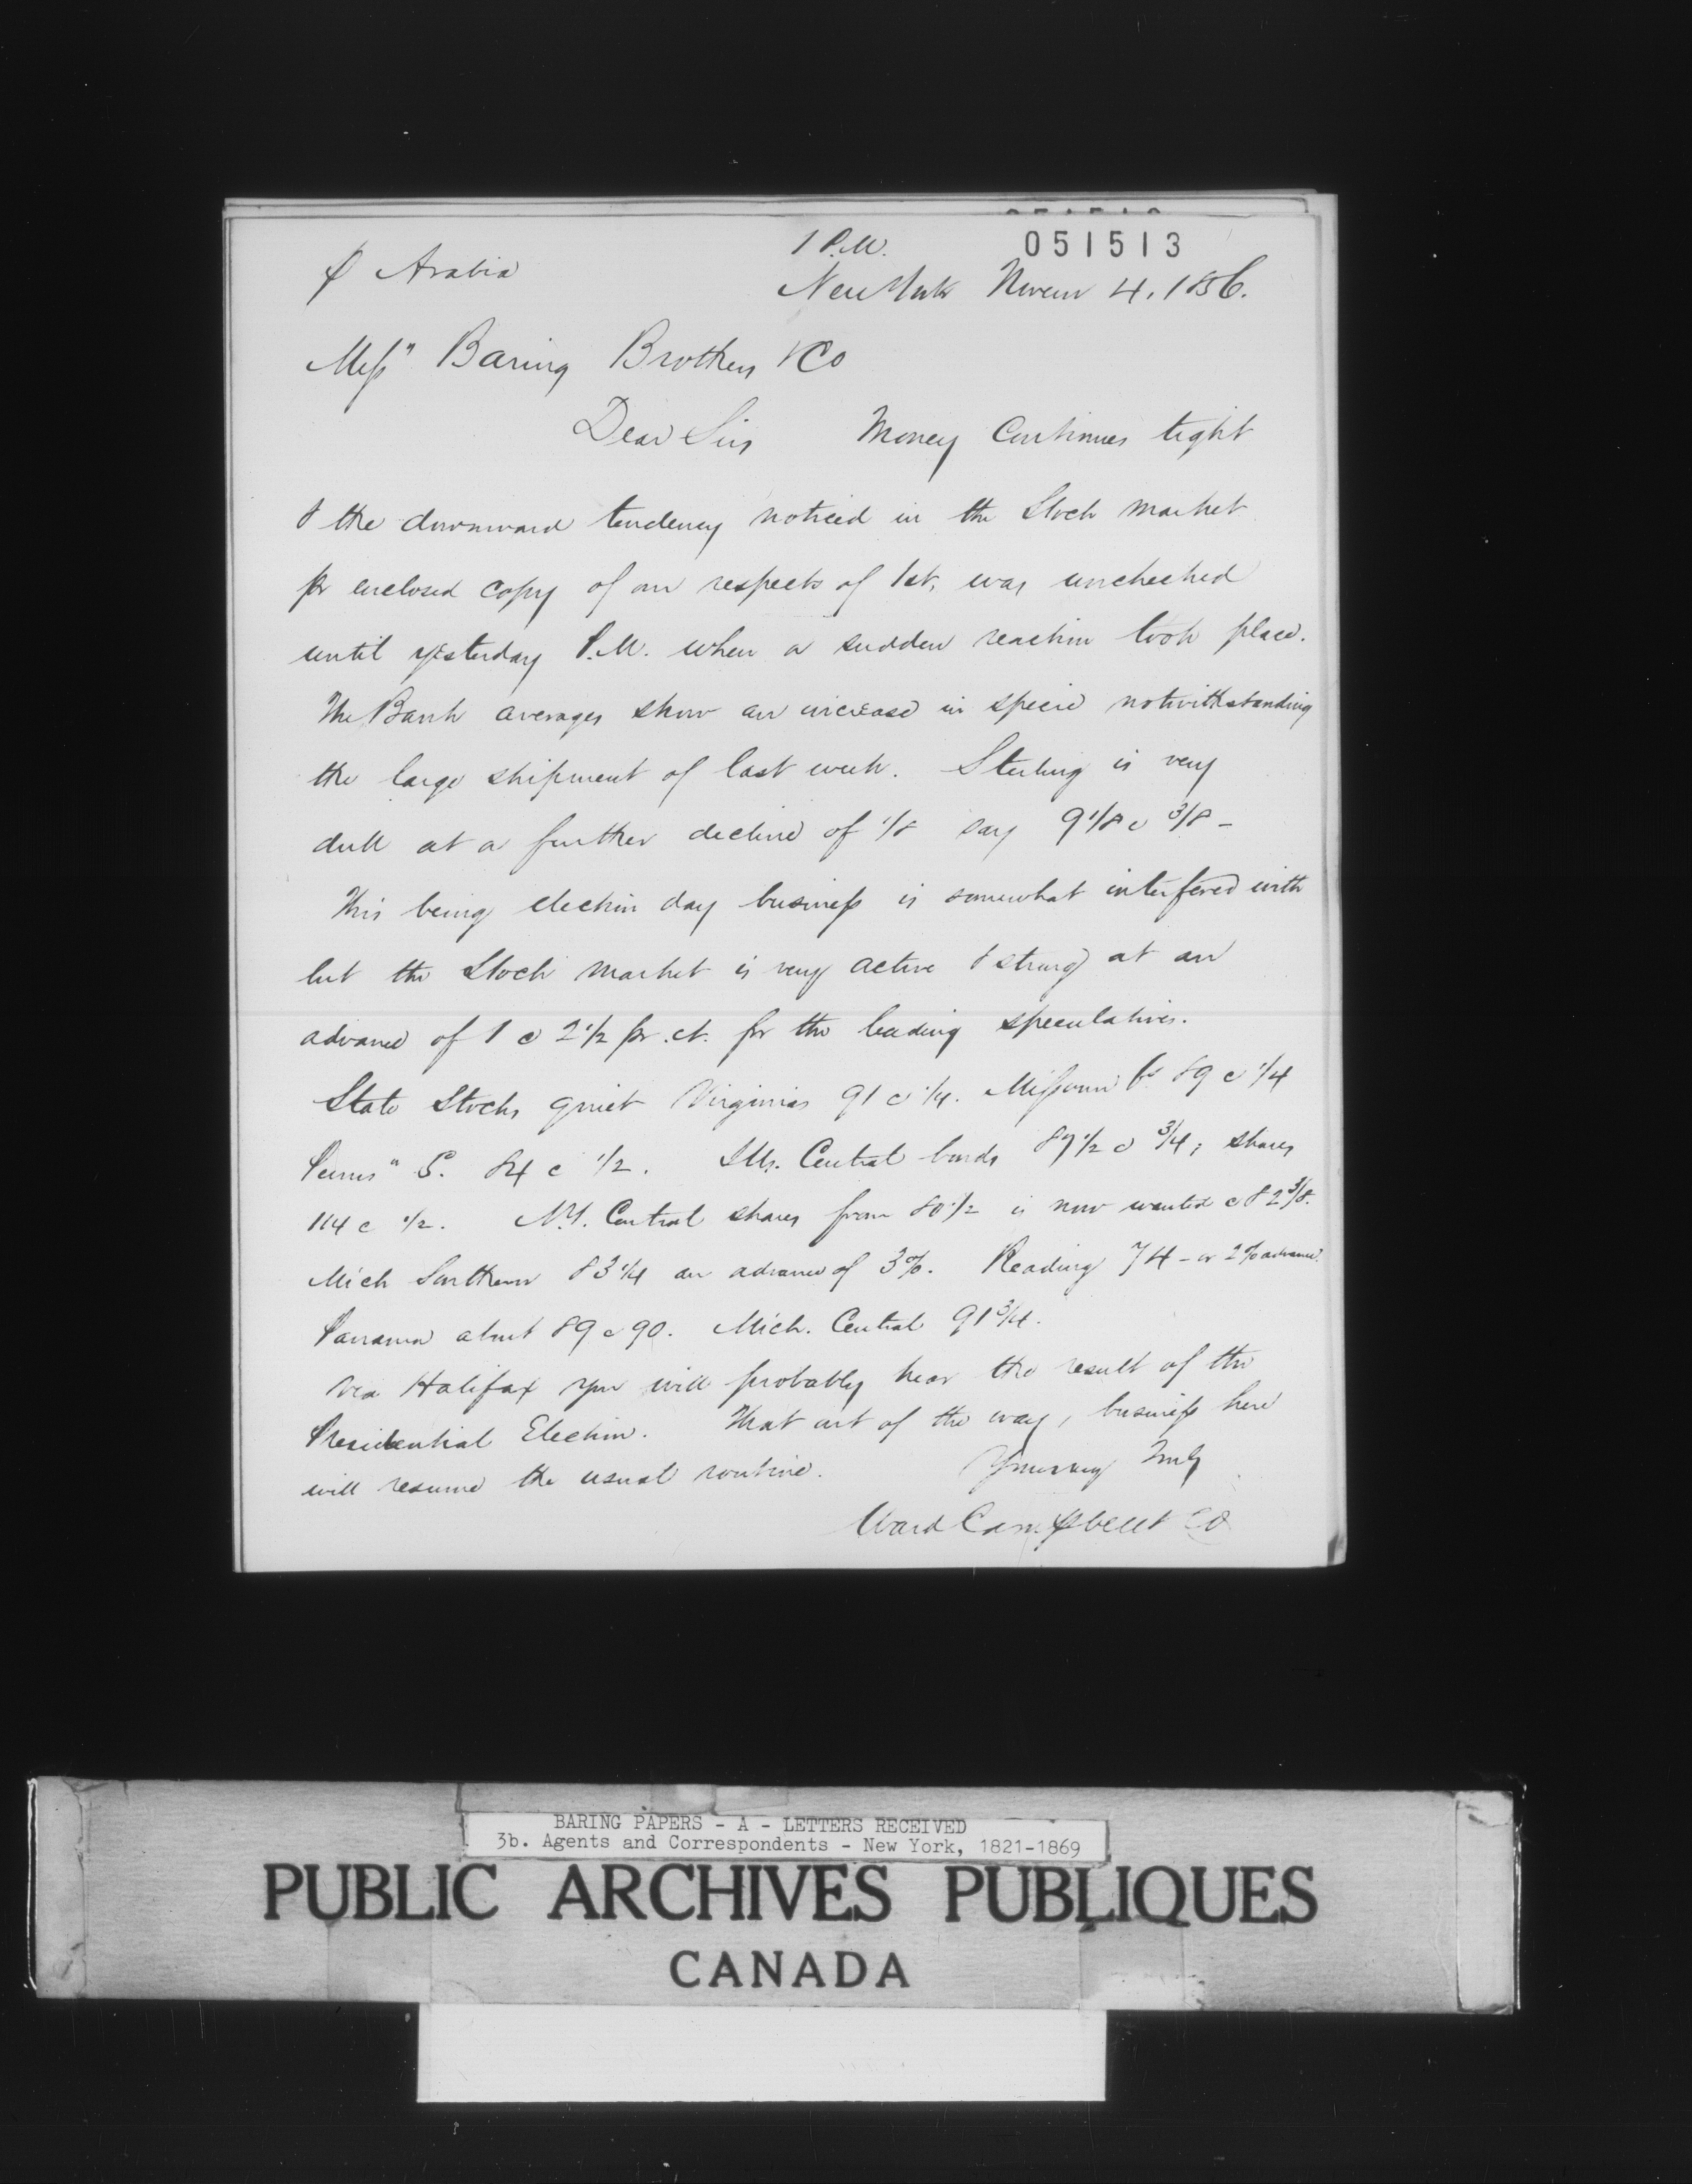 1 P.M.
051513
℔ Arabia
New York Novem 4. 1856.
Messrs Baring Brothers & Co
Dear Sirs Money Continues tight
& the downward tendency noticed in the Stock market
pr enclosed copy of our respects of 1st, was unchecked
until yesterday P.M. when a sudden reaction took place.
The Bank averages show an increase in specie notwithstanding
the large shipment of last week. Sterling is very
dull at a further decline of 1/8 say 9 1/8 @ 3/8 -
This being election day business is somewhat interfered with
but the Stock market is very active & strong at an
advance of 1 @ 2 1/2 pr. ct. for the leading speculatives.
State Stocks quiet Virginias 91 @ 1/4. Missouri 6s 89 @ 1/4
Penns" 5. 84 @ 1/2. Ills. Central bonds 87 1/2 @ 3/4; shares
114 @ 1/2. N.Y. Central shares from 80 1/2 is now wanted @ 82 3/8.
Mich Southern 83 1/4 an advance of 3%. Reading 74 - or 2% advance.
Panama about 89 @ 90. Mich. Central 91 3/4.
via Halifax you will probably hear the result of the
Presidential Election. That out of the way, business here
will resume the usual routine. Yours very Truly
Ward Campbell & Co
BARING PAPERS - A - LETTERS RECEIVED
3b. Agents and Correspondents - New York, 1821-1869
PUBLIC ARCHIVES PUBLIQUES
CANADA